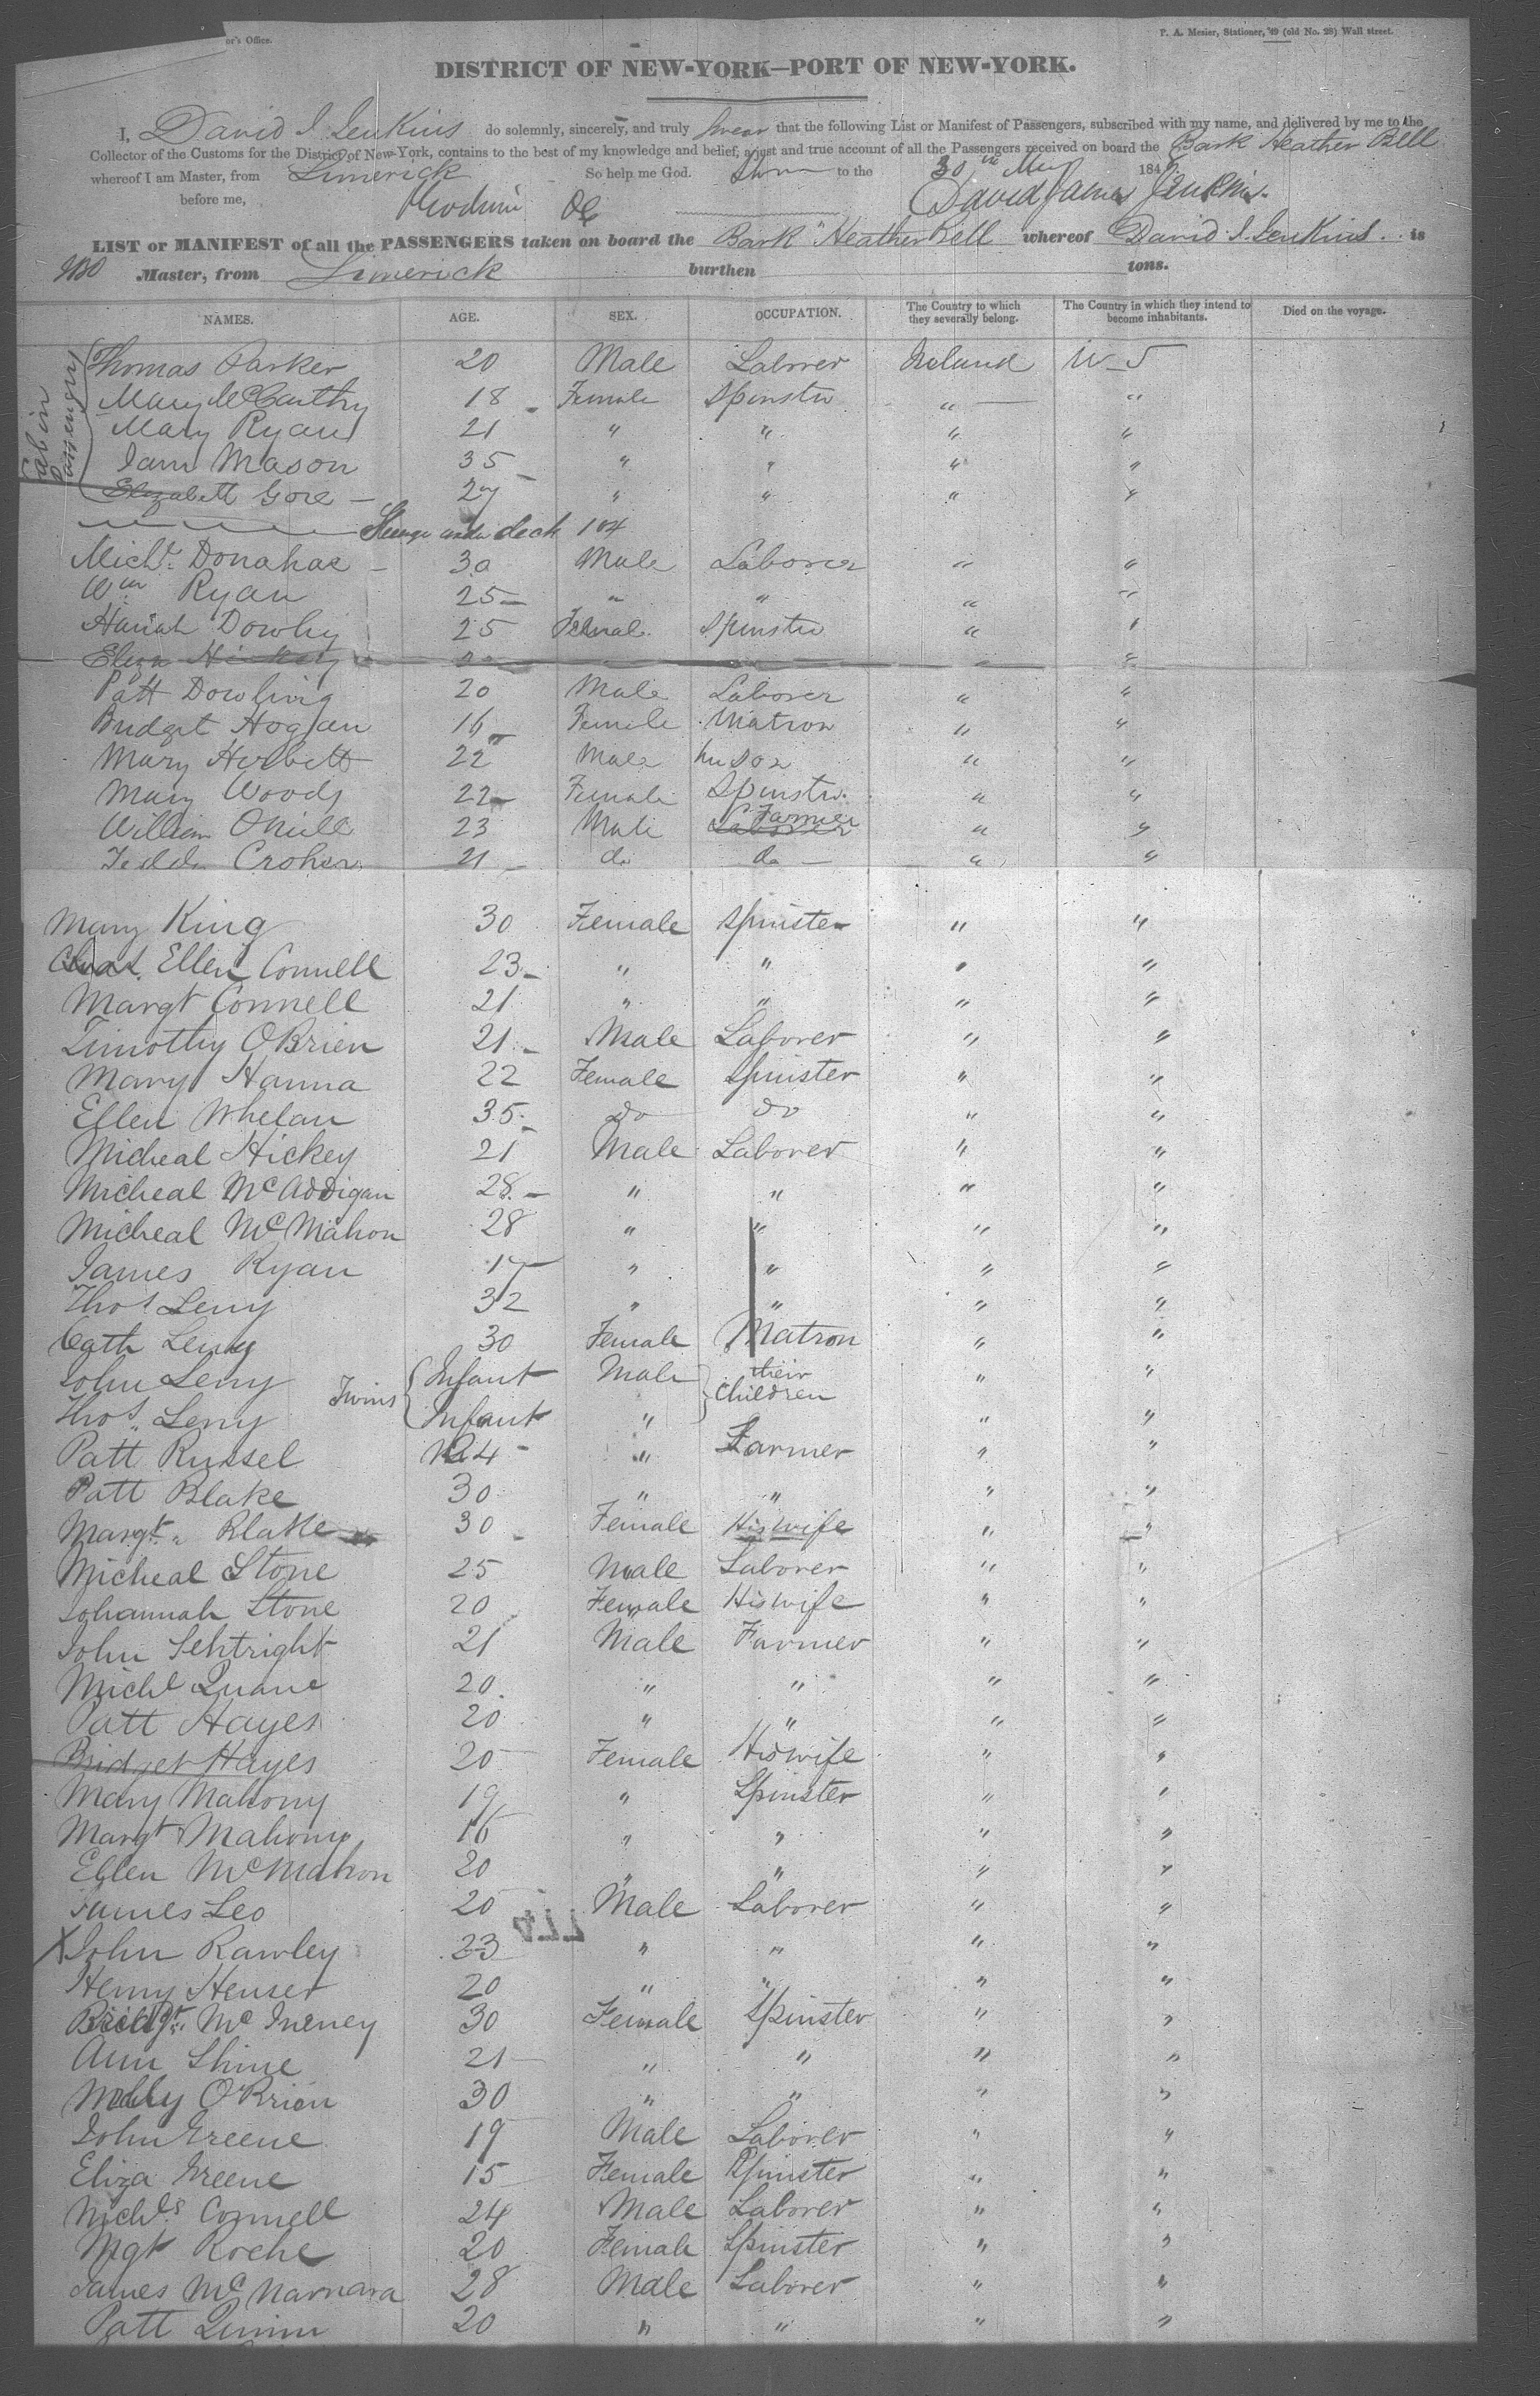 or's Office.
P. A. Mesier, Stationer, 49 (old No. 28) Wall street.
DISTRICT OF NEW-YORK—PORT OF NEW-YORK.
I, David J Jenkins do solemnly, sincerely, and truly swear that the following List or Manifest of Passengers, subscribed with my name, and delivered by me to the
Collector of the Customs for the District of New-York, contains to the best of my knowledge and belief, a just and true account of all the Passengers received on board the Bark Heather Bell
whereof I am Master, from Limerick So help me God. Sworn to the 30th May 184
before me, David James Jenkins.
LIST or MANIFEST of all the PASSENGERS taken on board the Bark "Heather Bell whereof David J. Jenkins. is
Master, from Limerick burthen tons.
NAMES. AGE. SEX. OCCUPATION. The Country to which they severally belong. The Country in which they intend to become inhabitants. Died on the voyage.
Cabin Passengers
Thomas Parker 20 Male Laborer Ireland U S
Mary McCarthy 18 Female Spinster " "
Mary Ryan 21 " " " "
Jane Mason 35 " " " "
Elizabett Gore 27 " " " "
Steerage under deck 104
Michl. Donahae 30 Male Laborer " "
Wm Ryan 25 " " " "
Hanah Dowly 25 Female Spinster " "
Eliza Hickey " "
Patt Dowling 20 Male Laborer " "
Bridget Hogan 16 Female Matron " "
Mary Herbett 22 Male her son " "
Mary Woods 22 Female Spinstr. " "
William ONeill 23 Male Laborer Farmer " "
Croker 21 do do " "
Mary King 30 Female Spinster " "
Ellen Connell 23 " " " "
Margt Connell 21 " " " "
Timothy OBrien 21 Male Laborer " "
Mary Hanna 22 Female Spinister " "
Ellen Whelan 35 do do " "
Micheal Hickey 21 Male Laborer " "
Micheal McAddigan 28 " " " "
Micheal McMahon 28 " " " "
James Ryan 17 " " " "
Thos Leny 32 " " " "
Cath Leny 30 Female Matron " "
John Leny Twins Infant Male their Children " "
Thos. Leny Infant " " "
Patt Russel 24 " Farmer " "
Patt Blake 30 " " " "
Margt. Blake 30 Female His wife " "
Micheal Stone 25 Male Laborer " "
Johannah Stone 20 Female His wife " "
John Sentright 21 Male Farmer " "
Michl Quane 20 " " " "
Patt Hayes 20 " " " "
Bridget Hayes 20 Female His wife " "
Mary Mahony 19 " Spinster " "
Margt Mahony 16 " " " "
Ellen McMahon 20 " " " "
James Leo 20 Male Laborer " "
X John Rawley 23 " " " "
Henry Heuser 20 " " " "
Bridgt. McIneney 30 Female Spinster " "
Ann Shine 21 " " " "
Molly O'Brien 30 " " " "
John Greene 19 Male Laborer " "
Eliza Greene 15 Female Spinster " "
Nichls Connell 24 Male Laborer " "
Mgt Roche 20 Female Spinster " "
James McNamara 28 Male Laborer " "
Patt Quinn 20 " " " "